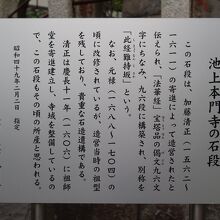 池上本門寺の石段
この石段は、加藤清正（一五六二～
一六一一）の寄進によって造営されたと
伝えられ、「法華経」宝塔品の偈文九六文
字にちなみ、九六段に構築され、別称を
「此経難持坂」という。
なお、元禄（一六八八～一七〇四）の
頃に改修されているが、造営当時の祖型
を残しており、貴重な石造遺構である。
清正は慶長十一年（一六〇六）に祖師
堂を寄進建立し、寺域を整備しているの
で、この石段もその頃の所産と思われる。
昭和四十九年二月二日 指定